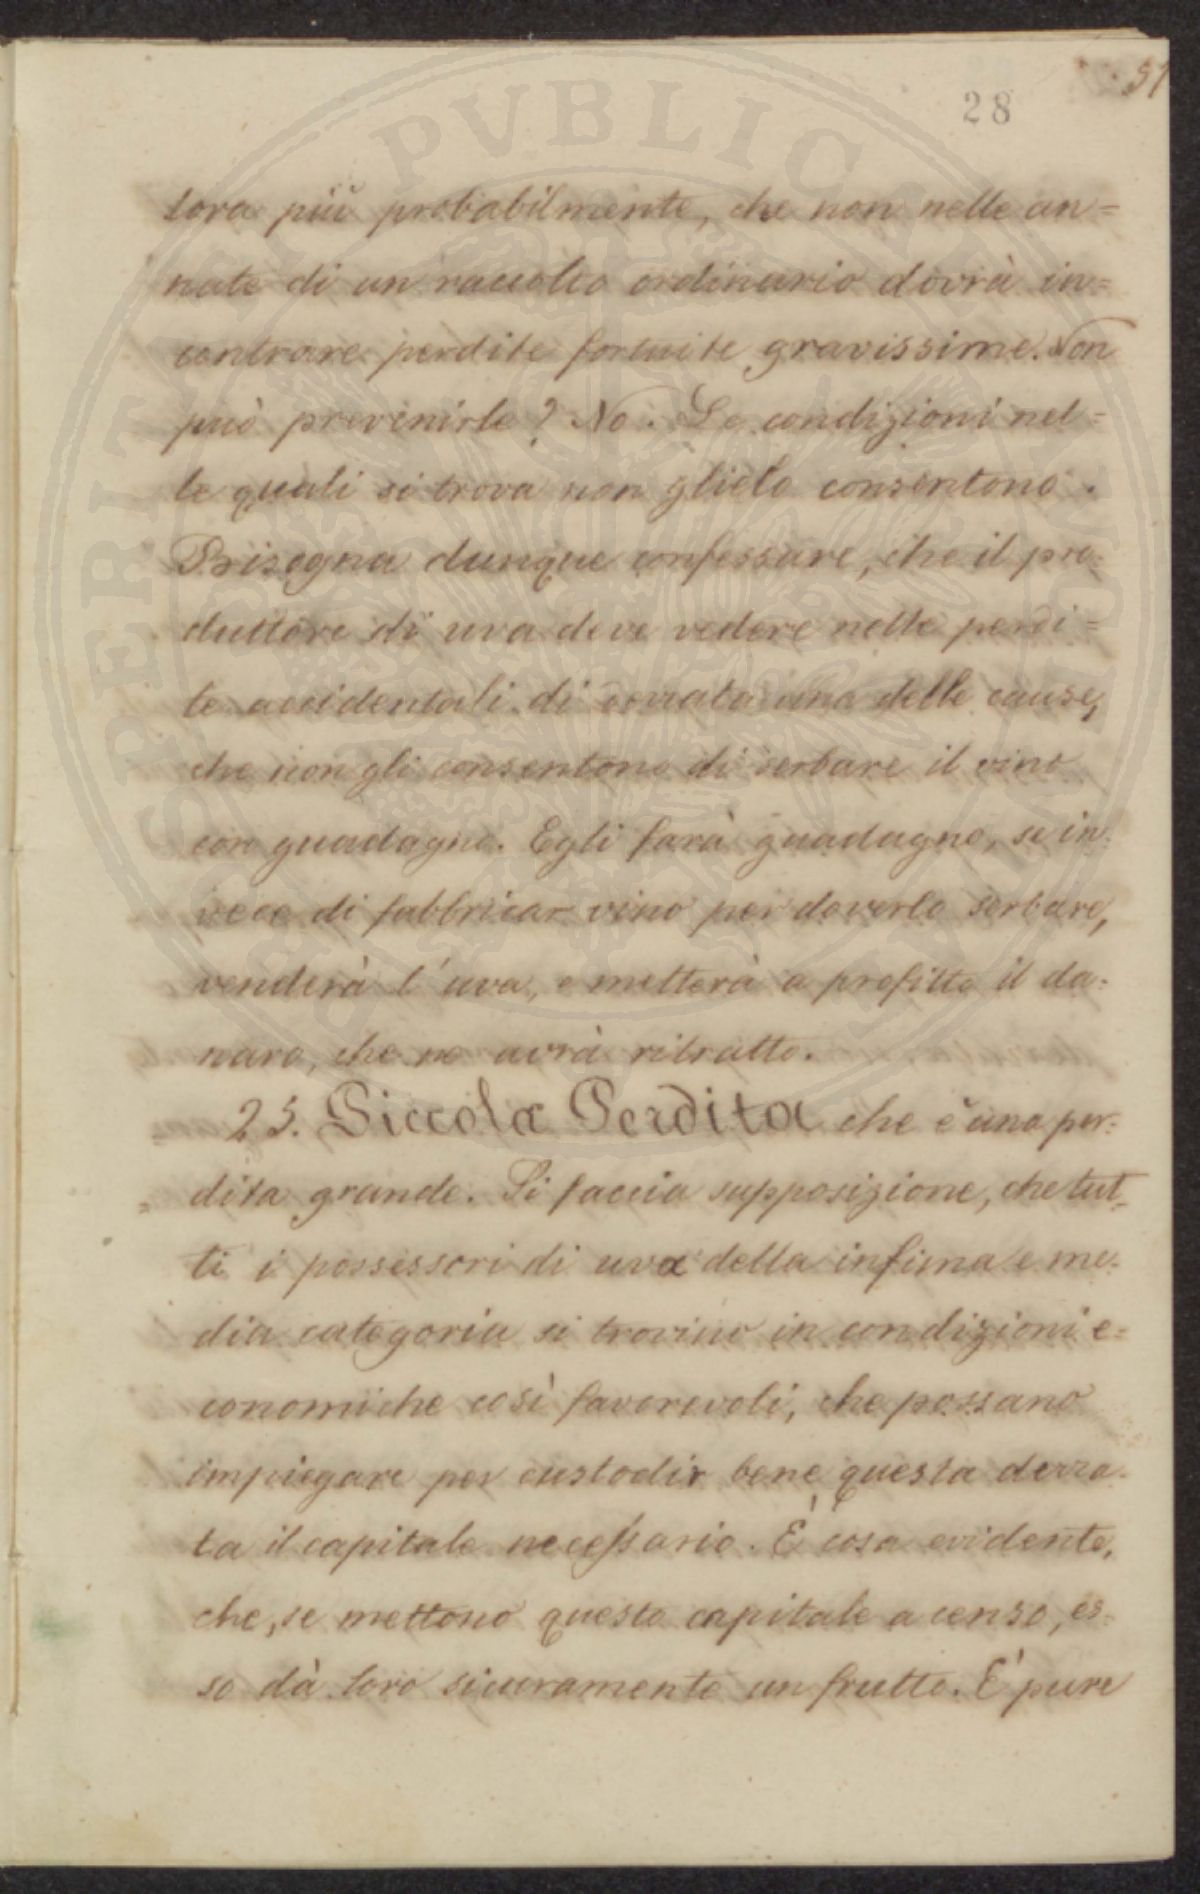 51
28
lora più probabilmente, che non nelle an=
nate di un raccolto ordinario dovrà in=
contrare perdite fortuite gravissime. Non
può prevenirle? No. Le condizioni nel=
le quali si trova non glielo consentono.
Bisogna dunque confessare, che il pro=
duttore di uva deve vedere nelle perdi=
te accidentali di derrata una delle cause,
che non gli consentono di serbare il vino
con guadagno. Egli farà guadagno, se in=
vece di fabbricar vino per doverlo serbare,
venderà l'uva, e metterà a profitto il da=
naro, che ne avrà ritratto.
25. Piccola Perdita che è una per=
dita grande. Si faccia supposizione, che tut=
ti i possessori di uva della infima e me=
dia categoria si trovino in condizioni e=
conomiche così favorevoli, che possano
impiegare per custodir bene questa derra=
ta il capitale necessario. È cosa evidente,
che, se mettono questo capitale a censo, es=
so dà loro sicuramente un frutto. È pure